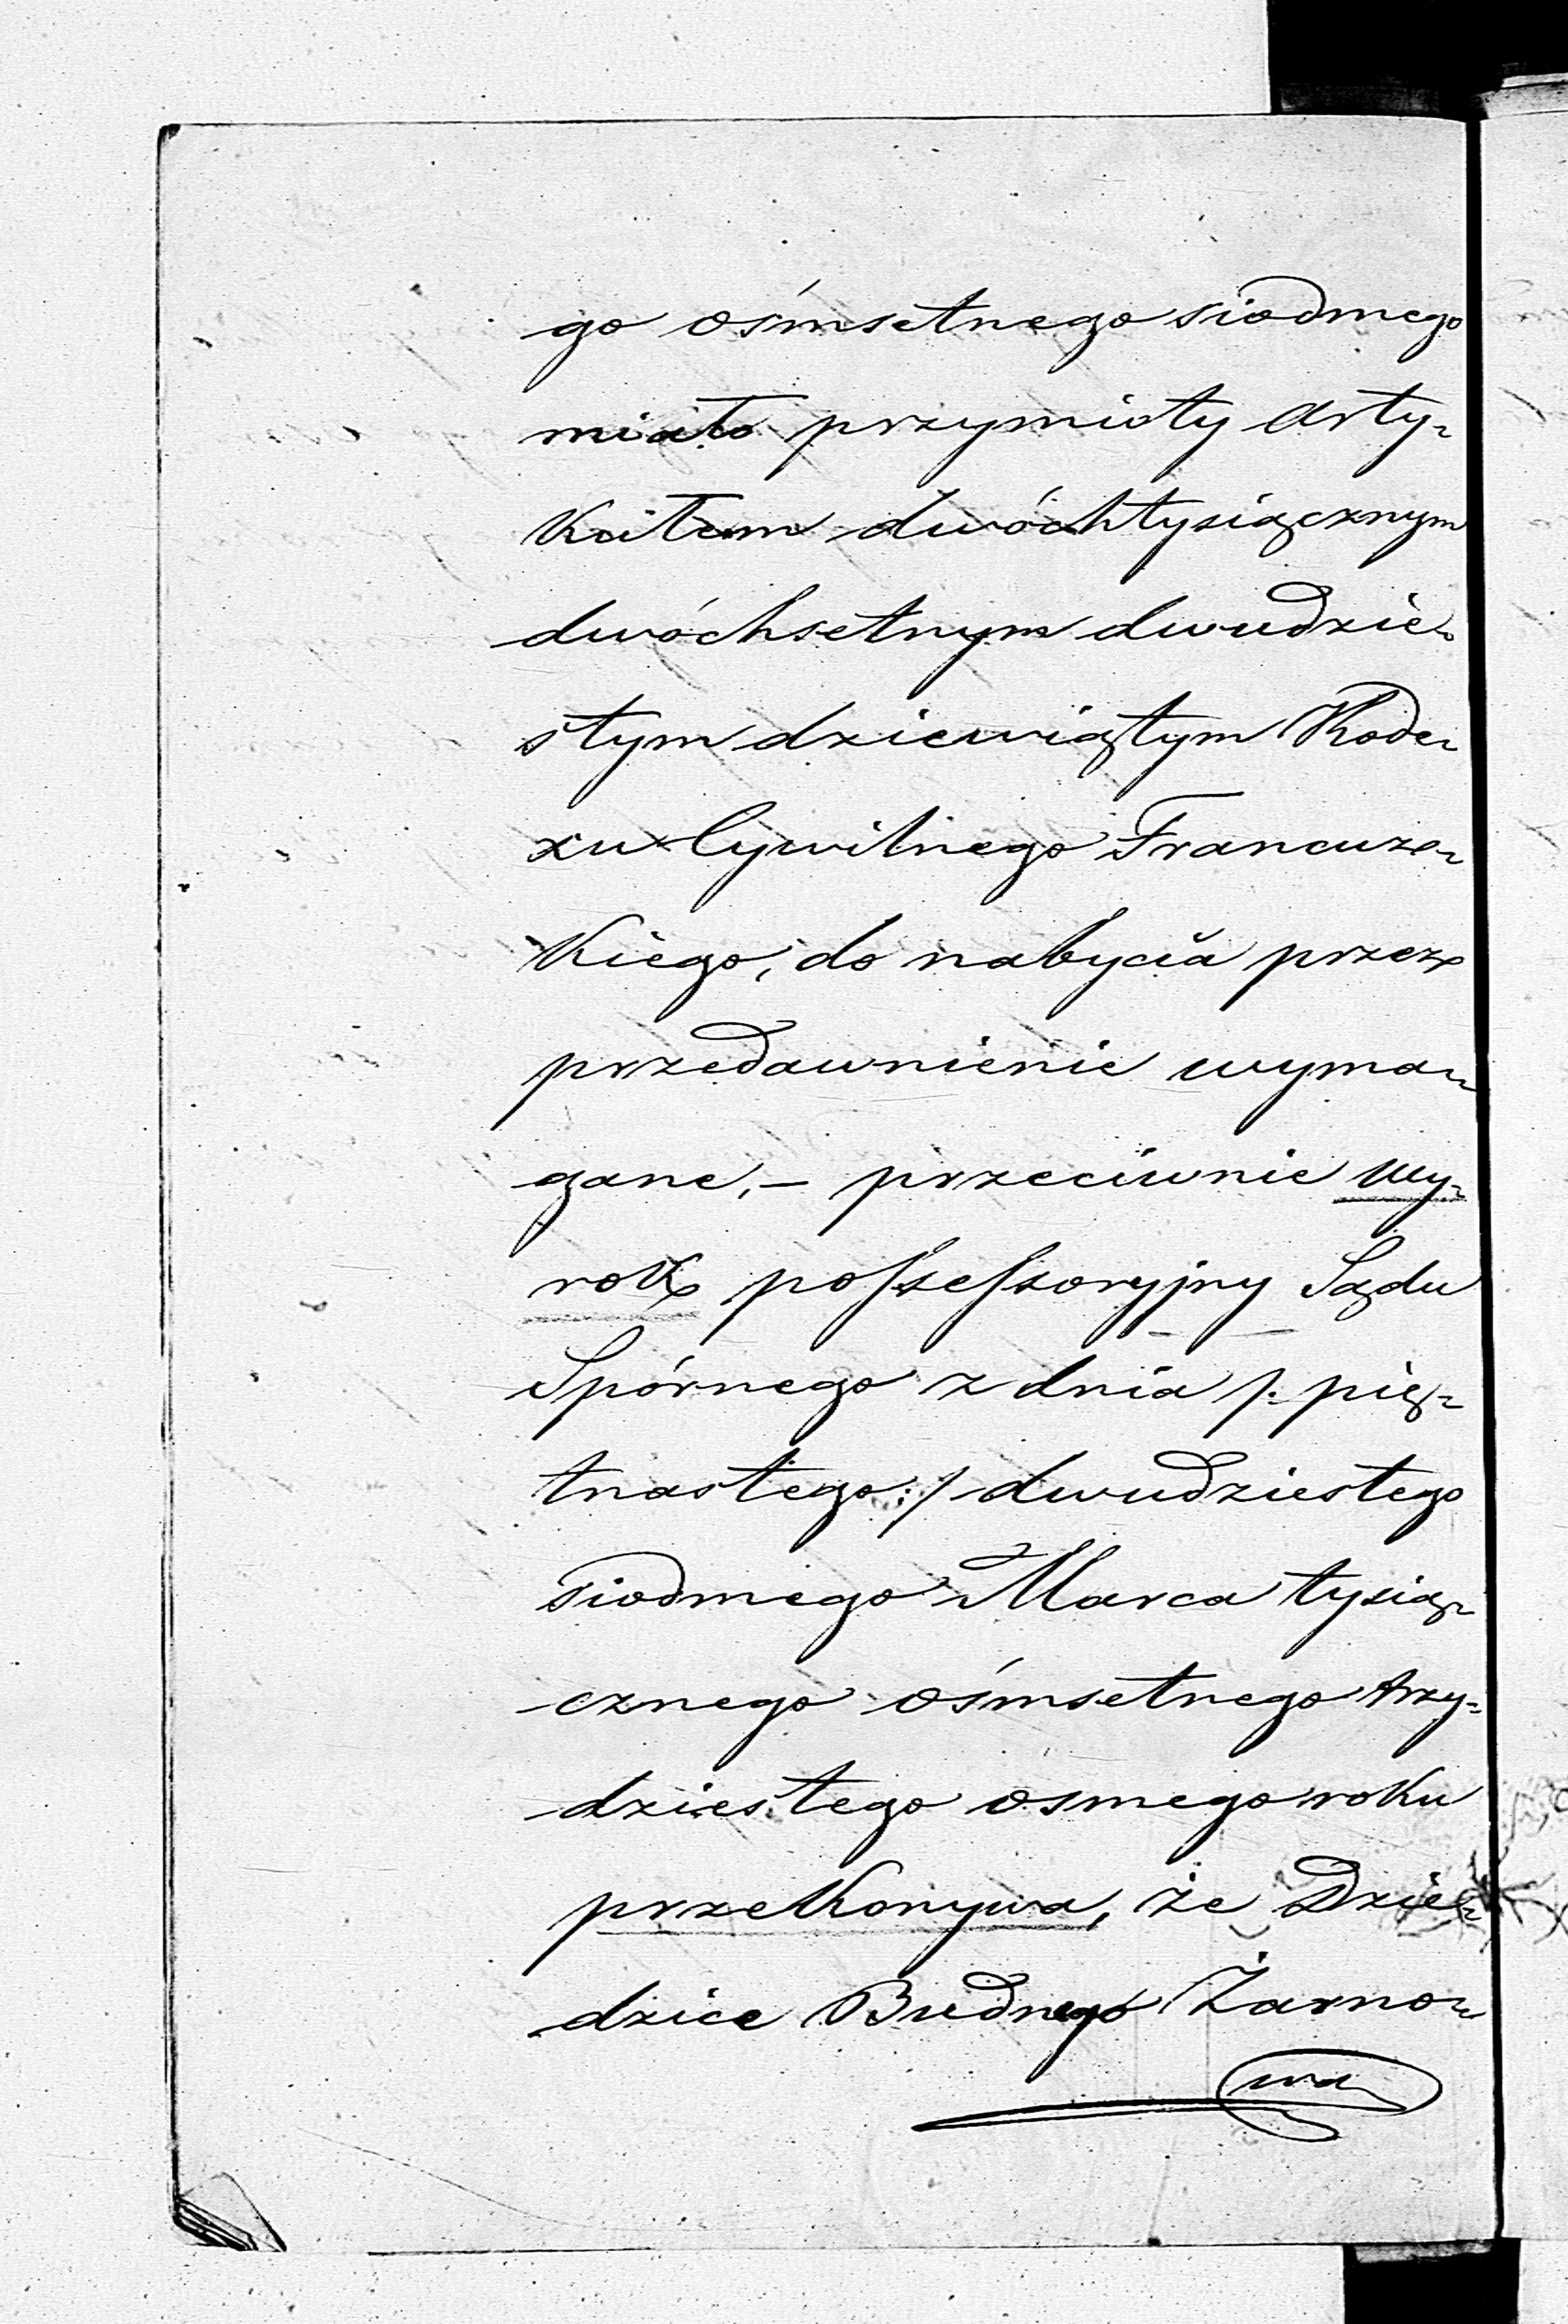 go ośmsetnego siodmego
miało przymioty Arty-
kułem dwóchtysiącznym
dwóchsetnym dwudzie-
stym dziewiątym Kode-
xu Cywilnego Francuz-
kiego, do nabycia przez
przedawnienie wyma-
gane, - przeciwnie wy-
rok possessoryjny Sądu
Spórnego z dnia /: pię-
tnastego :/ dwudziestego
siodmego Marca tysią-
cznego ośmsetnego trzy-
dziestego osmego roku
przekonywa, że Dzie-
dzice Budnego Żarno-
wa